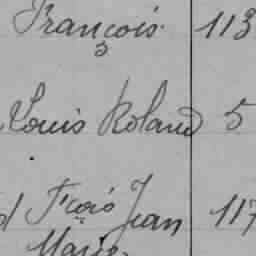 François 113
Louis Roland 5
d Fçois Jean 117
Marie